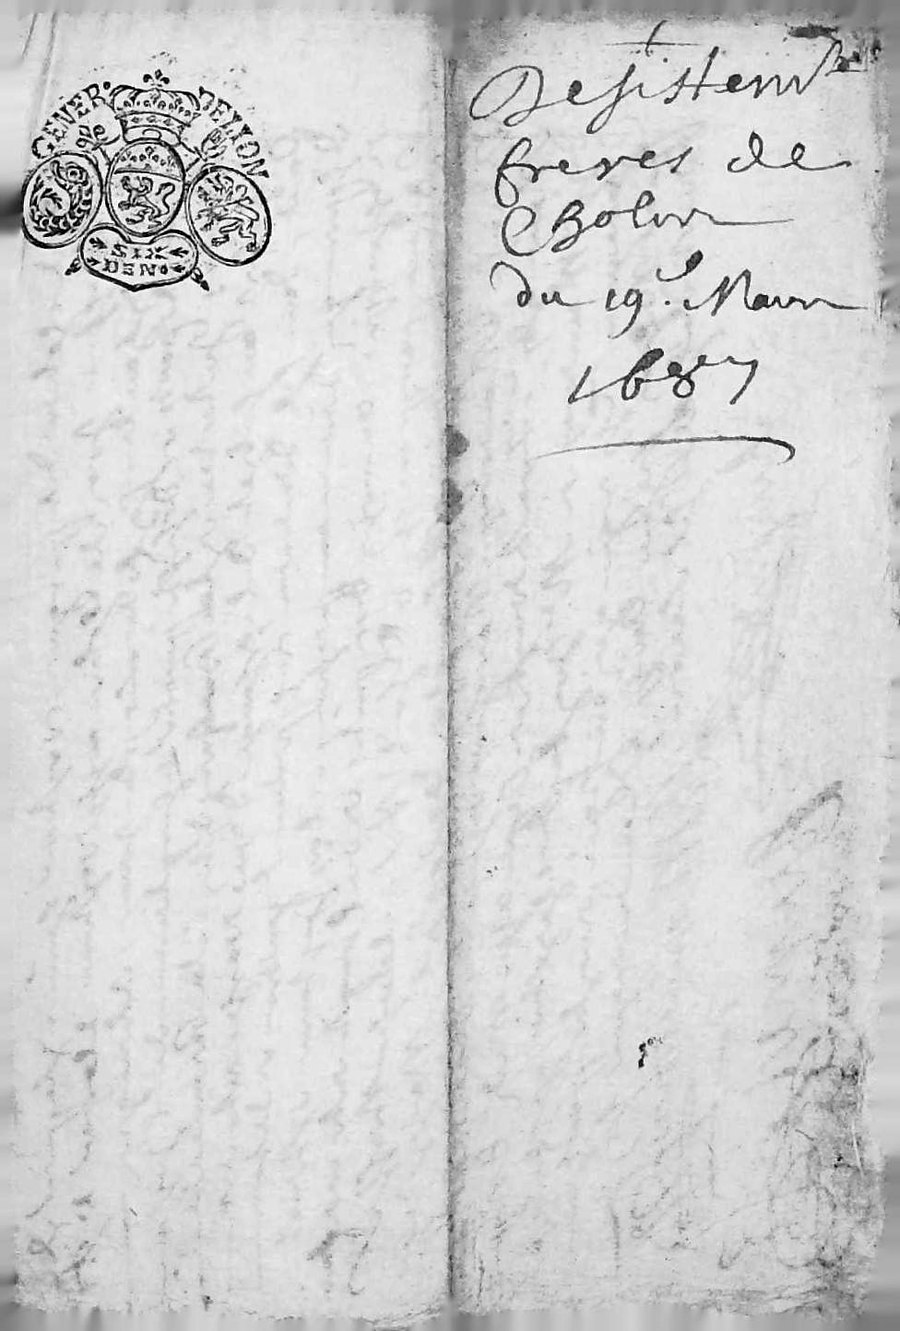 GENER. DE LION
SIX
DEN.
Desistemt
freres de
Cholvin
du 19e. Mars
1687